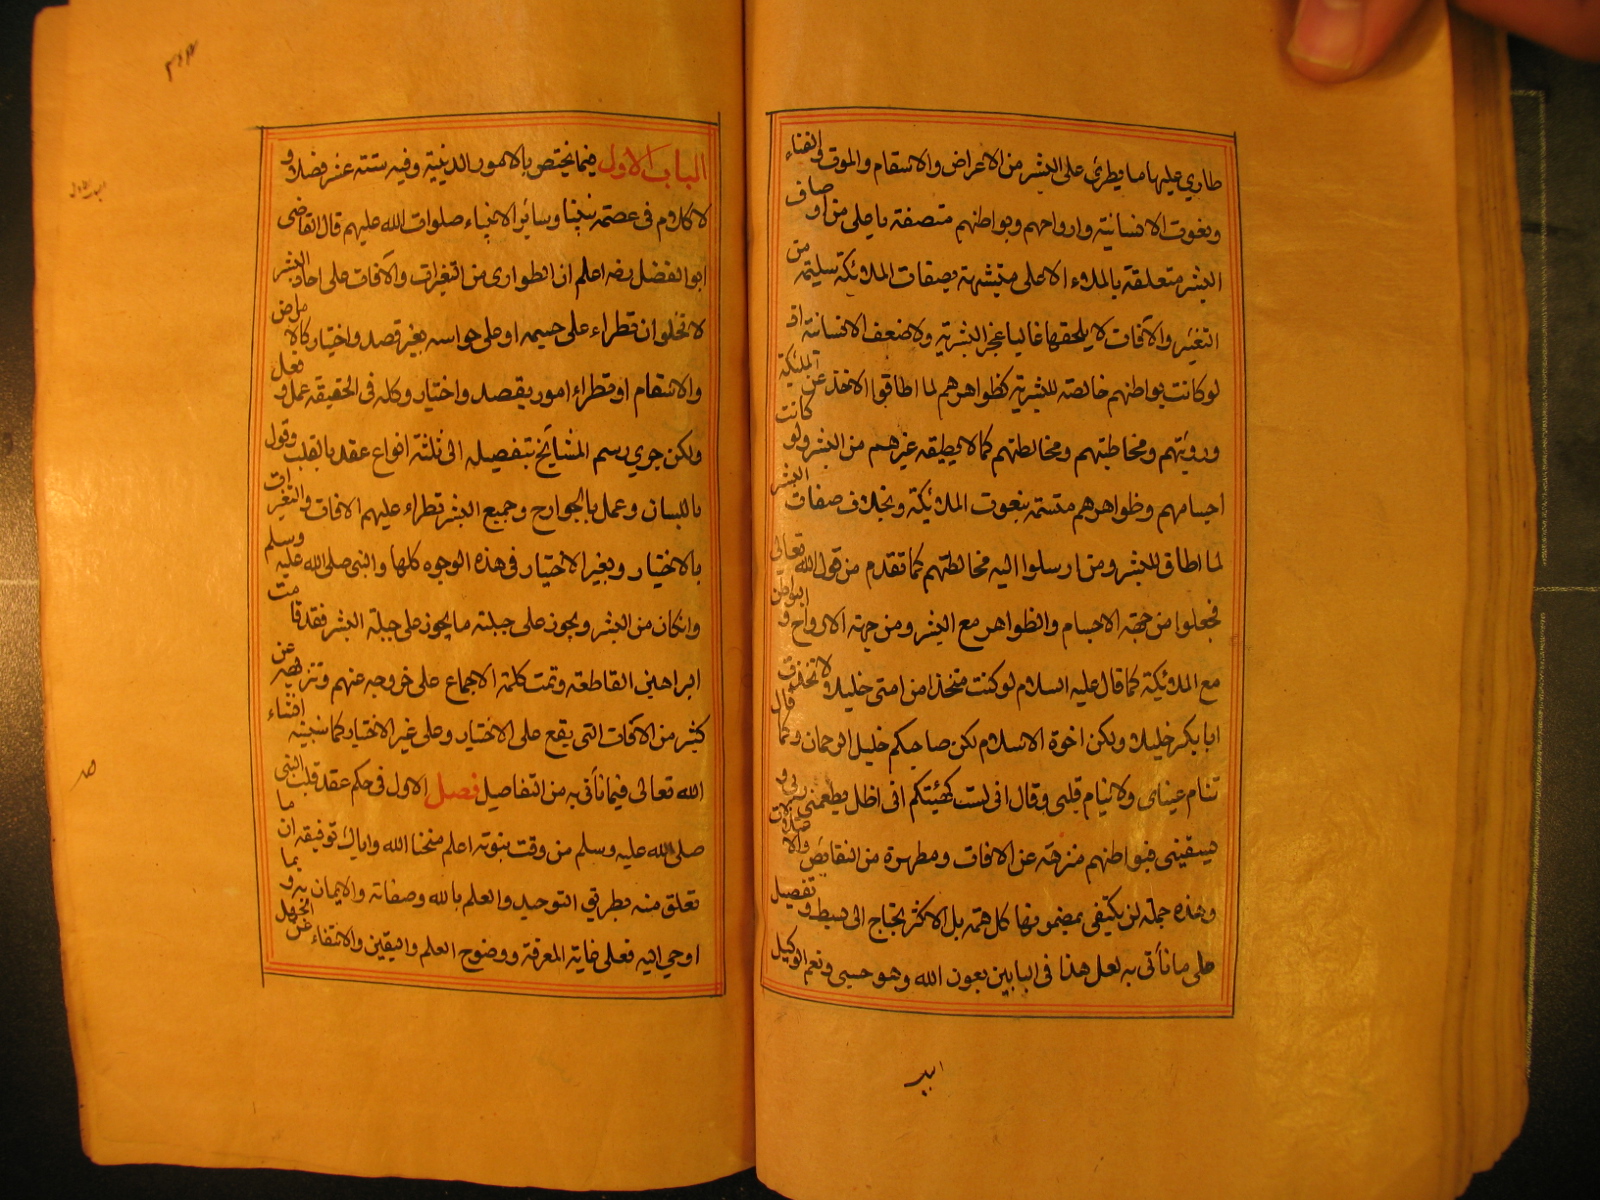 طاري عليها ما يطرئ على البشر من الاعراض والاسقام والموت والفناء
ونعوت الانسانية وارواحهم وبواطنهم متصفة باعلى من اوصاف
البشر متعلقة بالملاء الاعلى متشبهة بصفات الملائكة سليمة من
التغير والآفات لا يلحقها غالبا عجز البشرية ولا ضعف الانسانة اذ
لو كانت بواطنهم خالصة للبشرية كظواهرهم لما اطاقوا الاخذ عن الملئكة
ورويتهم ومخاطبتهم ومخالطتهم كما لا يطيقه غيرهم من البشر ولو كانت
اجسامهم وظواهرهم متسمة بنعوت الملائكة وبخلاف صفات البشر
لما اطاق للبشر ومن ارسلوا اليه مخالطتهم كما تقدم من قول الله تعالى
فجعلوا من جهة الاجسام والظواهر مع البشر ومن جهة الارواح والبواطن
مع الملائكة كما قال عليه السلام لو كنت متخذا من امتى خليلا لاتخذت
ابا بكر خليلا ولكن اخوة الاسلام لكن صاحبكم خليل الرحمان وكما قال
تنام عيناى ولا ينام قلبى وقال انى لست كهيئتكم انى اظل يطعمنى ربى و
يسقينى فبواطنهم منزهة عن الافات ومطهرة من النقايص والاعتلالات
وهذه جملة لن يكتفى بمضمونها كل همة بل الاكثر يحتاج الى بسط وتفصيل
على ما نأتى به لعل هذا فى البابين بعون الله وهو حسبى ونعم الوكيل
الباب الاول فيما يختص بالامور الدينية وفيه ستة عشر فصلا و
لا كلام فى عصمة نبينا وساير الانبياء صلوات الله عليهم قال القاضى
ابو الفضل رضه اعلم ان الطوارى من التغيرات والآفات على احاد البشر
لا تخلوا ان تطراء على جسمه او على حواسه بغير قصد واختيار كالامراض
والاسقام او تطراء امور بقصد واختيار وكله فى الحقيقة عمل وفعل
ولكن جرى رسم المشايخ بتفصيله الى ثلثة انواع عقد بالقلب وقول
باللسان وعمل بالجوارح وجميع البشر تطراء عليهم الافات والتغيرات
بالاختيار وبغير الاختيار فى هذه الوجوه كلها والنبى صلى الله عليه وسلم
وان كان من البشر ويجوز على جبلته ما يجوز على جبلة البشر فقد قامت
البراهين القاطعة وتمت كلمة الاجماع على خروجه عنهم وتنزيهه عن
كثير من الآفات التى يقع على الاختيار وعلى غير الاختيار كما سنبينه انشاء
الله تعالى فيما نأتى به من التفاصيل فصل الاول فى حكم عقد قلب النبى
صلى الله عليه وسلم من وقت نبوته اعلم منحنا الله واياك توفيقه ان ما
تعلق منه بطريق التوحيد والعلم بالله وصفاته والايمان به وبما
اوحى اليه فعلى غاية المعرفة ووضوح العلم واليقين والانتفاء عن الجهل